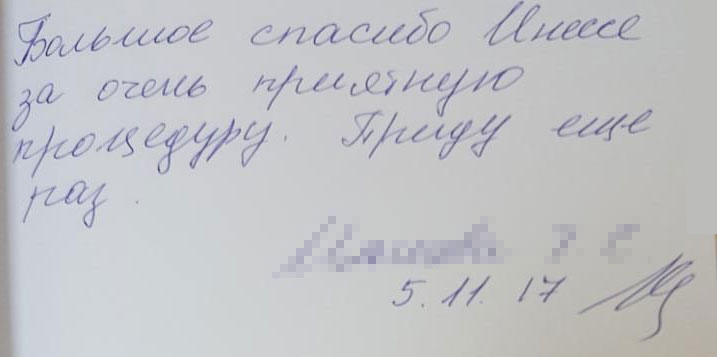 Большое спасибо Инне
за очень приятную
процедуру. Приду еще
раз.
5.11.17